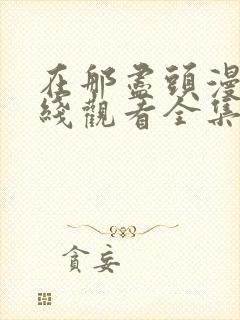 在那盡頭漫
綫觀看全集
貪妄